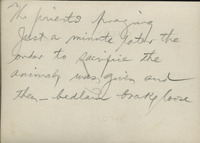 The priests praying
Just a minute later the
order to sacrifice the
animals was given and
then - bedlam broke loose